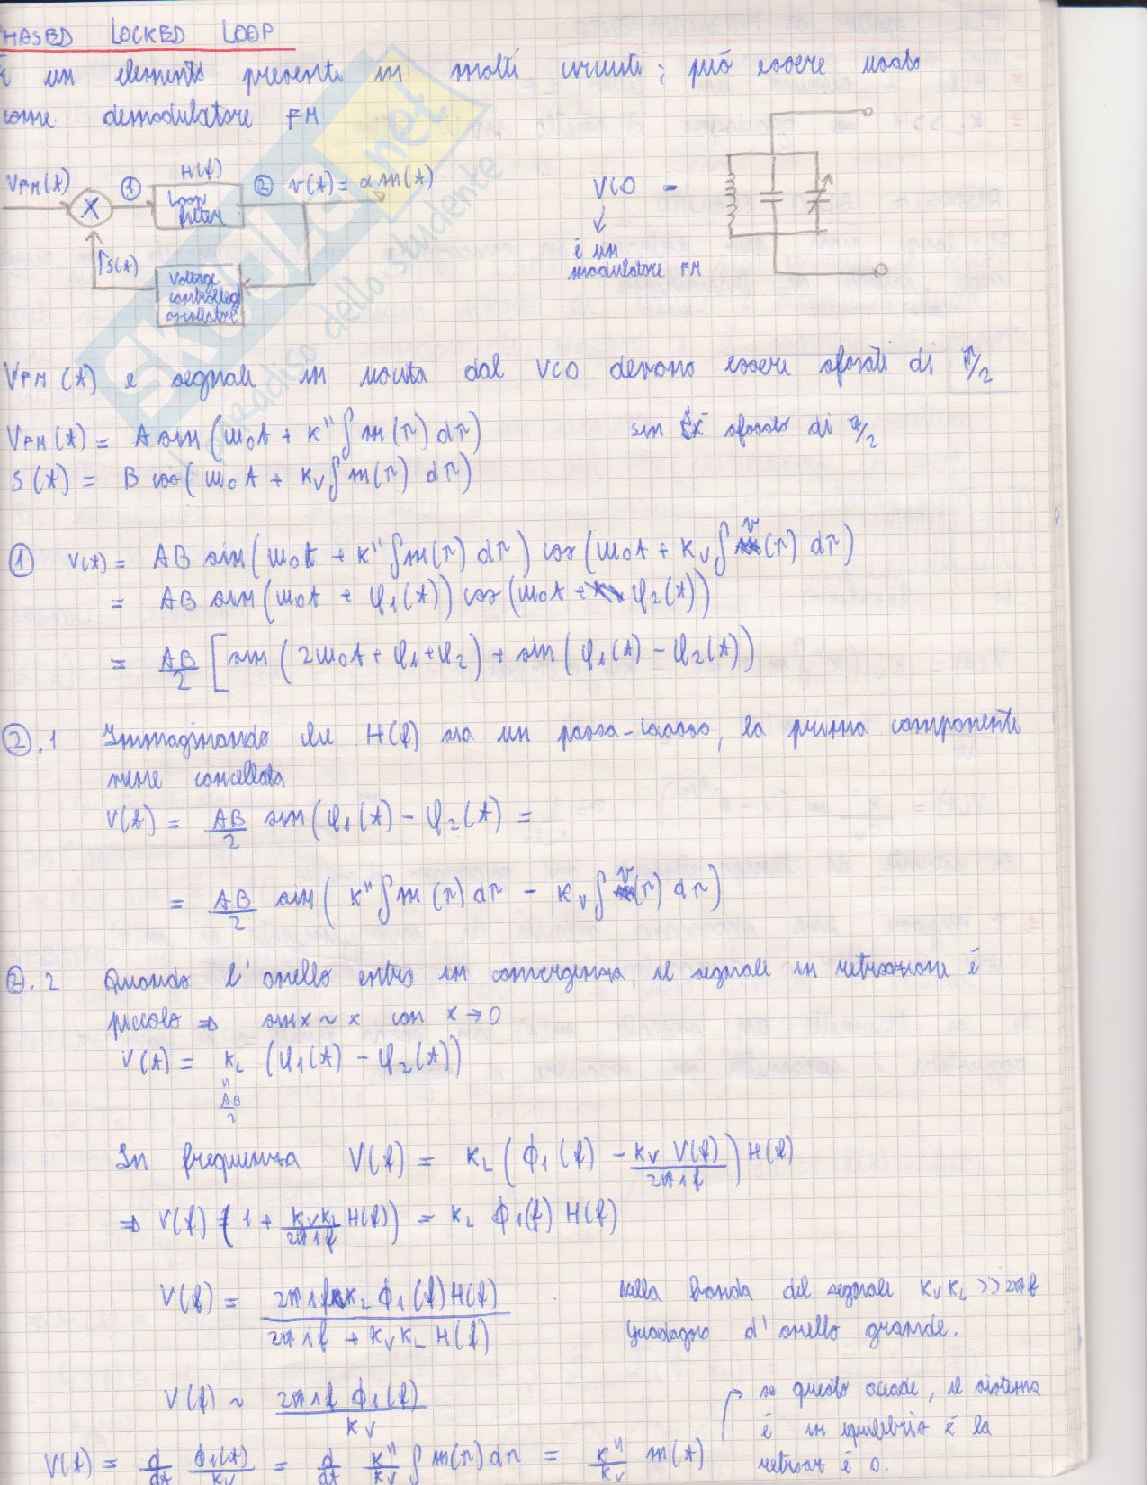 PHASED LOCKED LOOP
È un elemento presente in molti circuiti; può essere usato
come demodulatore FM
VFM(t) X ① H(f) Loop filter ② v(t) = α m(t)
↑S(t) Voltage controlled oscillator
VCO
↓
è un
modulatore FM
VFM(t) e segnale in uscita dal VCO devono essere sfasati di π/2
VFM(t) = A sin(ω0t + K" ∫ m(τ) dτ) sin è sfasato di π/2
S(t) = B cos(ω0t + Kv ∫ m(τ) dτ)
① v(t) = AB sin(ω0t + K" ∫ m(τ) dτ) cos(ω0t + Kv ∫ v(τ) dτ)
= AB sin(ω0t + φ1(t)) cos(ω0t + φ2(t))
= AB/2 [sin(2ω0t + φ1 + φ2) + sin(φ1(t) − φ2(t))
②.1 Immaginando che H(f) sia un passa-basso, la prima componente
viene cancellata
V(t) = AB/2 sin(φ1(t) − φ2(t) =
= AB/2 sin( K" ∫ m(τ) dτ − Kv ∫ v(τ) dτ)
②.2 Quando l'anello entra in convergenza il segnale in retroazione è
piccolo ⇒ sin x ~ x con x→0
V(t) = KL (φ1(t) − φ2(t))
"
AB/2
In frequenza V(f) = KL (ϕ1(f) − Kv V(f)/2πjf) H(f)
⇒ V(f) (1 + KvKL/2πjf H(f)) = KL ϕ1(f) H(f)
V(f) = 2πjf KL ϕ1(f) H(f) / 2πjf + KvKL H(f)
nella banda del segnale KvKL >> 2πf
guadagno d'anello grande.
V(f) ~ 2πjf ϕ1(f) / Kv
se questo accade, il sistema
è in equilibrio è la
retroaz è 0.
V(t) = d/dt ϕ1(t)/Kv = d/dt K"/Kv ∫ m(τ) dτ = K"/Kv m(t)